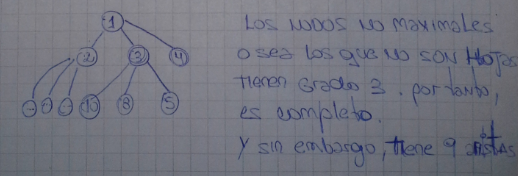 1
2 3 4
10 8 5
Los nodos no maximales
o sea los que no son Hojas
tienen Grado 3. por tanto,
es completo.
Y sin embargo, tiene 9 aristas